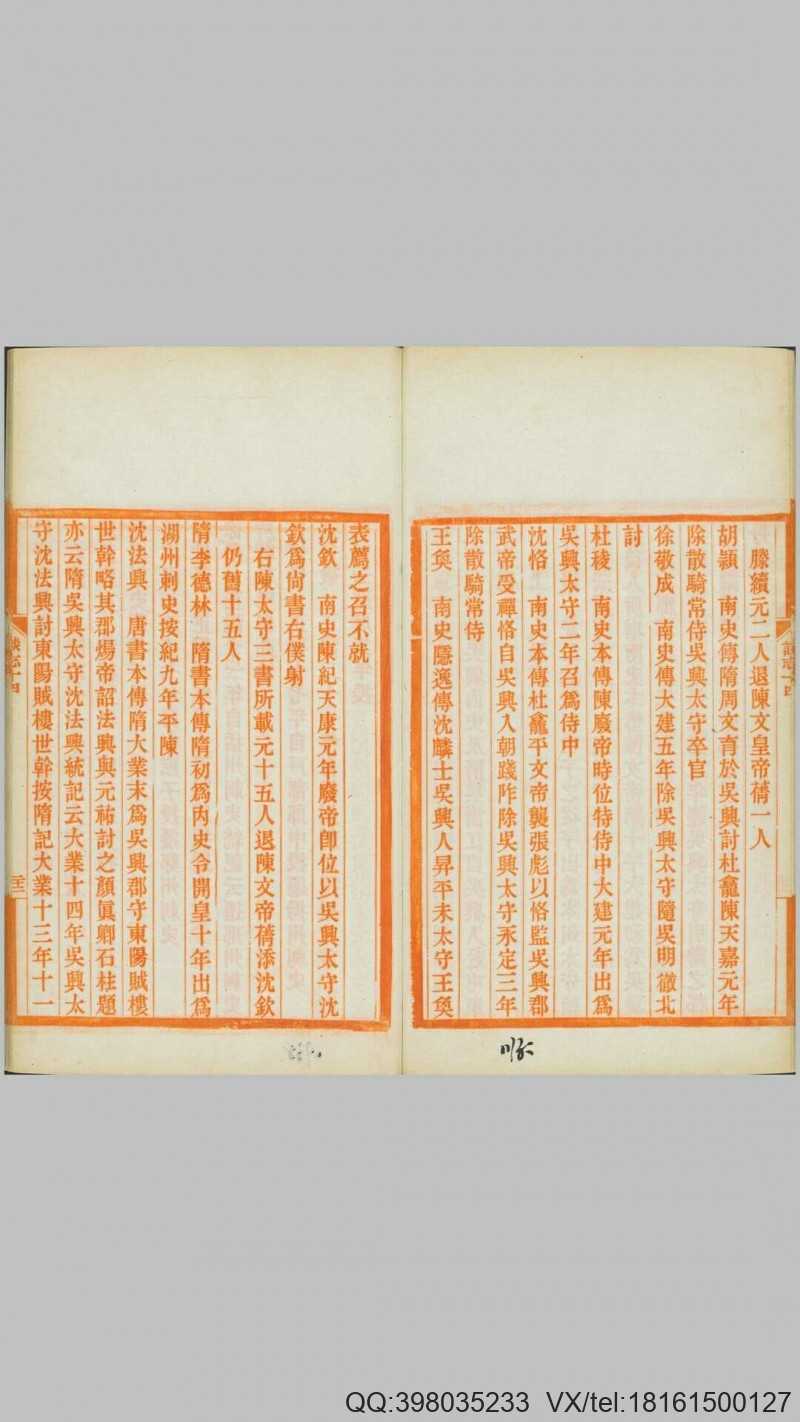 滕續元二人退陳文皇帝蒨一人
胡穎　南史傳隋周文育於吳興討杜龕陳天嘉元年
除散騎常侍吳興太守卒官
徐敬成　南史傳大建五年除吳興太守隨吳明徹北
討
杜稜　南史本傳陳廢帝時位特侍中大建元年出爲
吳興太守二年召爲侍中
沈恪　南史本傳杜龕平文帝襲張彪以恪監吳興郡
武帝受禪恪自吳興入朝踐阼除吳興太守永定三年
除散騎常侍
王奐　南史隱逸傳沈麟士吳興人昇平末太守王奐
表薦之召不就
沈欽　南史陳紀天康元年廢帝卽位以吳興太守沈
欽爲尙書右僕射
右陳太守三書所載元十五人退陳文帝蒨添沈欽
仍舊十五人
隋李德林　隋書本傳隋初爲內史令開皇十年出爲
湖州刺史按紀九年平陳
沈法興　唐書本傳隋大業末爲吳興郡守東陽賊樓
世幹略其郡煬帝詔法興與元祐討之顏眞卿石柱題
亦云隋吳興太守沈法興統記云大業十四年吳興太
守沈法興討東陽賊樓世幹按隋記大業十三年十一
QQ:398035233 VX/tel:18161500127